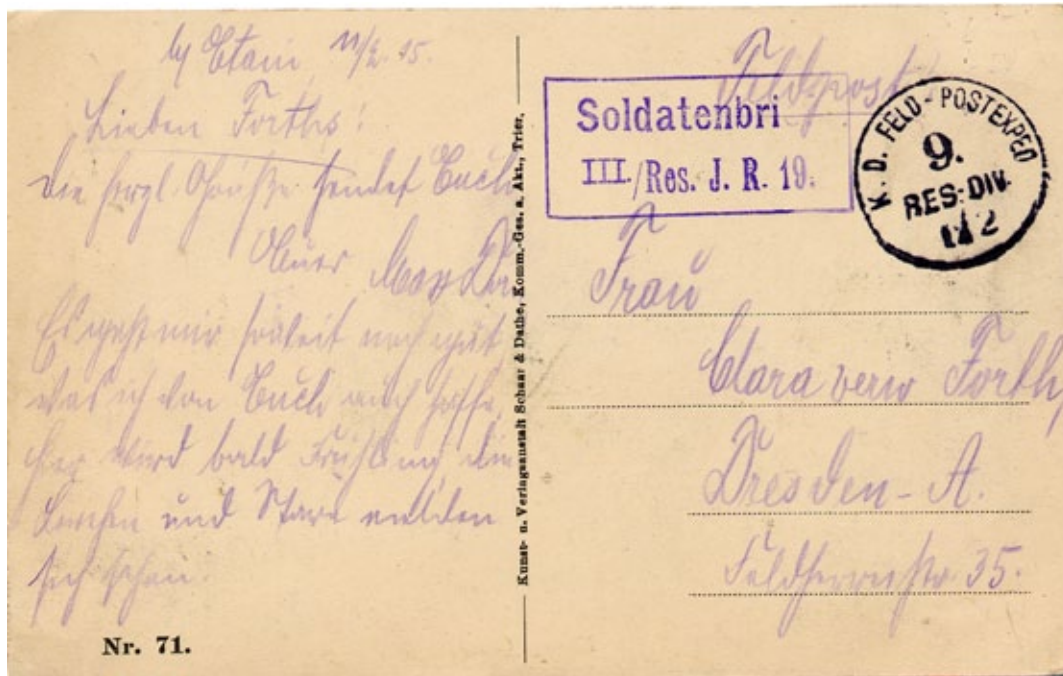 b/ Etain, 11/2. 15.
Lieben Forths!
Die herzl. Grüße sendet Euch
Euer Max
Es geht mir soweit noch gut
was ich von Euch auch hoffe,
hier wird bald Frühling die
Lerchen und Stare melden
sich schon.
Nr. 71.
Kunst- u. Verlagsanstalt Schaar & Dathe, Komm.-Ges. a. Akt., Trier.
Feldpost
Soldatenbri
III./Res. J. R. 19.
K. D. FELD-POSTEXPED
9.
RES: DIV.
12 2
Frau
Clara verw Forth
Dresden-A.
Feldherrnstr. 35.